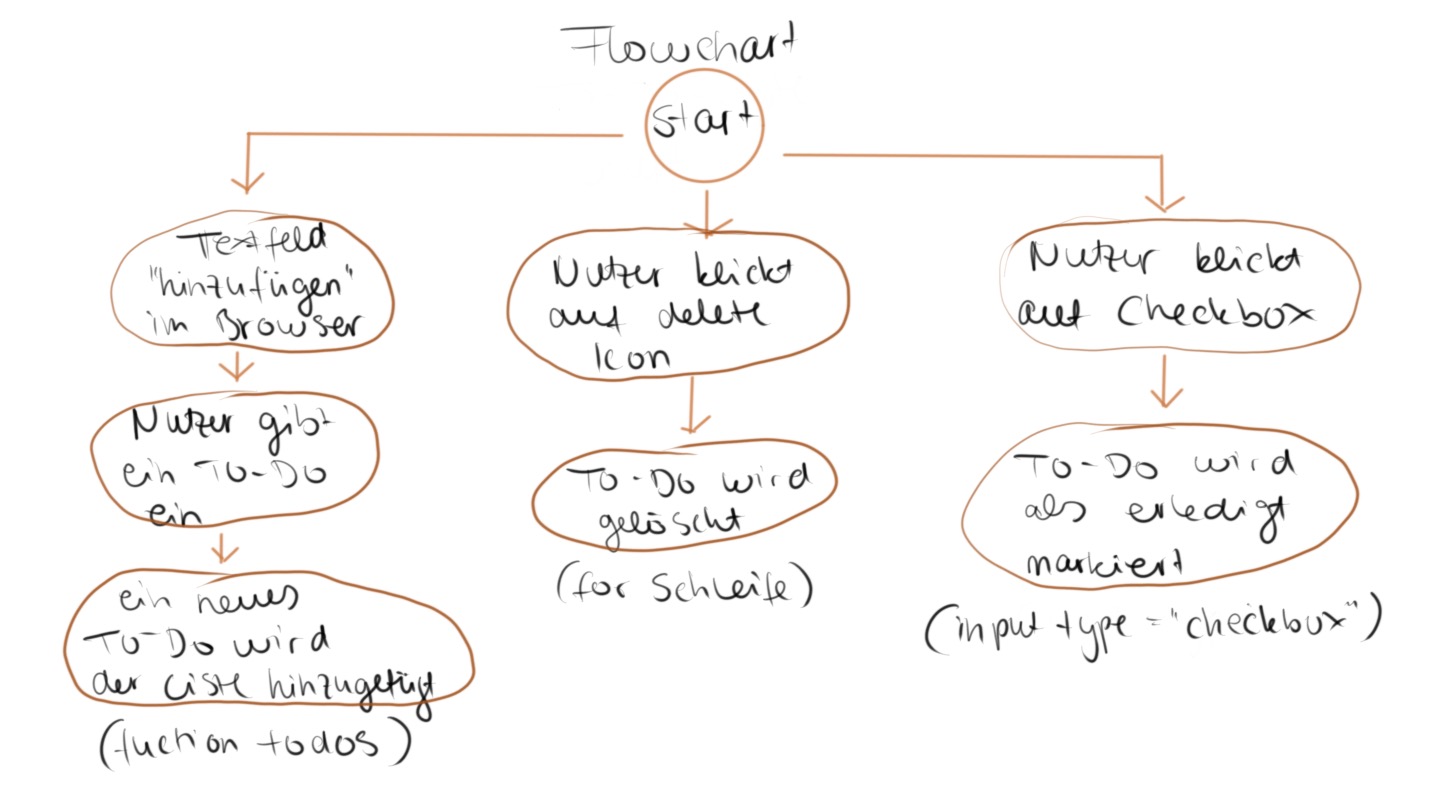 Flowchart
Start
Textfeld
"hinzufügen"
im Browser
Nutzer gibt
ein To-Do
ein
ein neues
To-Do wird
der Liste hinzugefügt
(fuction todos)
Nutzer klickt
auf delete
Icon
To-Do wird
gelöscht
(for Schleife)
Nutzer klickt
auf Checkbox
To-Do wird
als erledigt
markiert
(input type="checkbox")